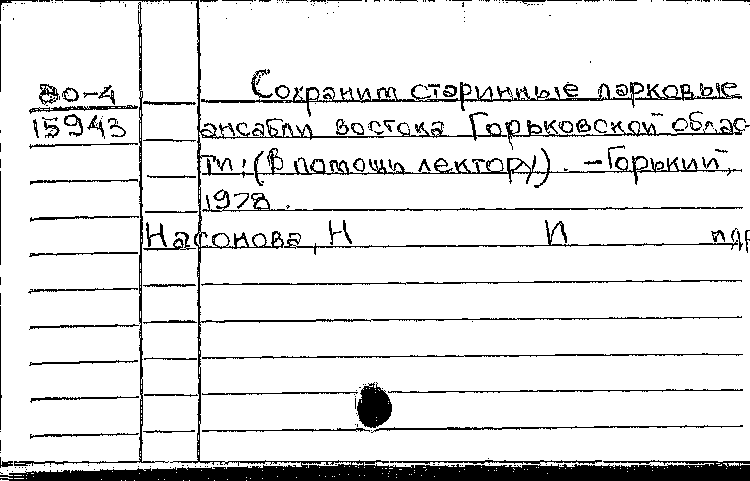 80-4 Сохраним старинные парковые
15943 ансабли востока Горьковской облас-
ти: (В помощь лектору). – Горький,
1978.
Насонова, Н И